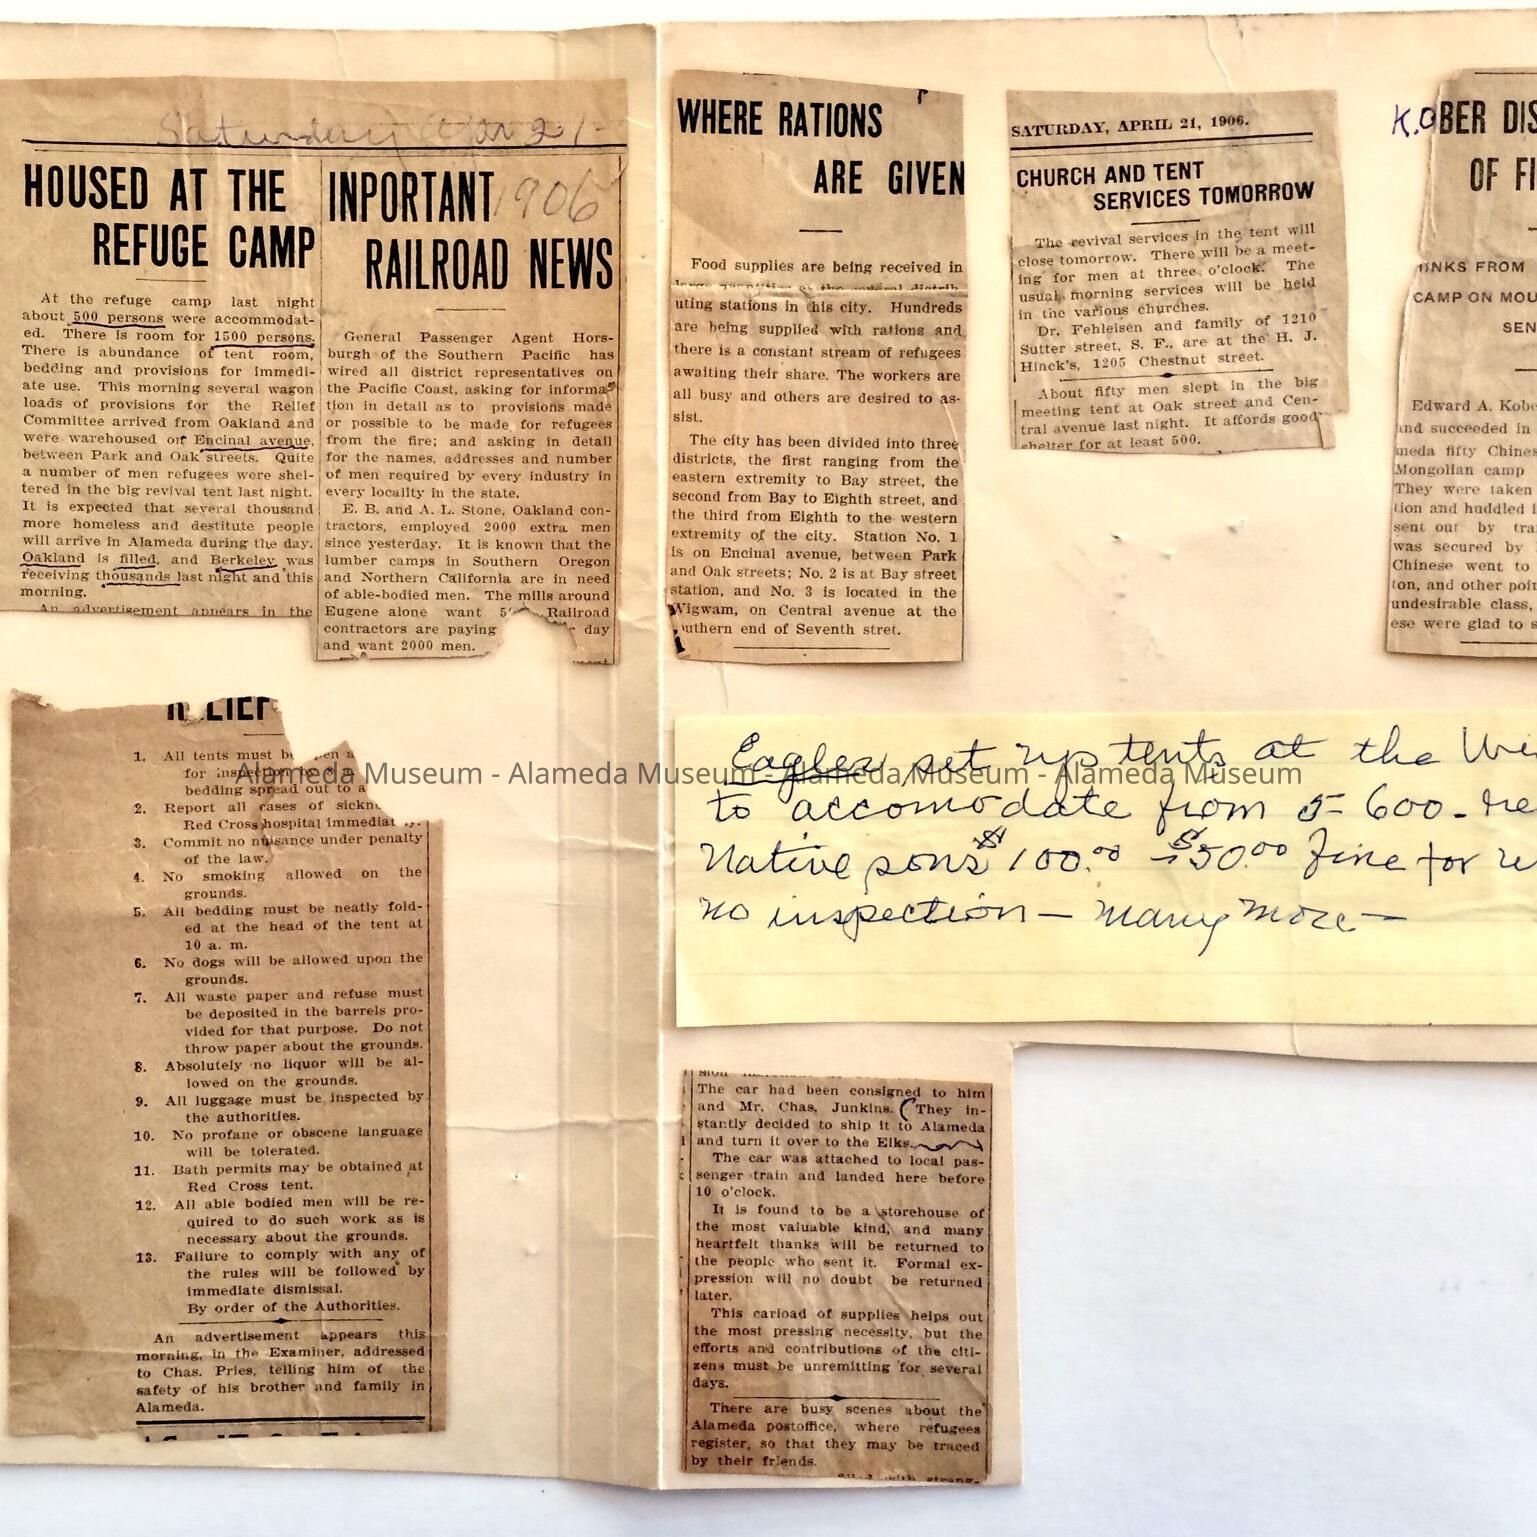 Saturday Apr 21-
1906
HOUSED AT THE
REFUGE CAMP
At the refuge camp last night
about 500 persons were accommodat-
ed. There is room for 1500 persons.
There is abundance of tent room,
bedding and provisions for immedi-
ate use. This morning several wagon
loads of provisions for the Relief
Committee arrived from Oakland and
were warehoused on Encinal avenue,
between Park and Oak streets. Quite
a number of men refugees were shel-
tered in the big revival tent last night.
It is expected that several thousand
more homeless and destitute people
will arrive in Alameda during the day.
Oakland is filled, and Berkeley was
receiving thousands last night and this
morning.
An advertisement appears in the
INPORTANT
RAILROAD NEWS
General Passenger Agent Hors-
burgh of the Southern Pacific has
wired all district representatives on
the Pacific Coast, asking for informa-
tion in detail as to provisions made
or possible to be made, for refugees
from the fire; and asking in detail
for the names, addresses and number
of men required by every industry in
every locality in the state.
E. B. and A. L. Stone, Oakland con-
tractors, employed 2000 extra men
since yesterday. It is known that the
lumber camps in Southern Oregon
and Northern California are in need
of able-bodied men. The mills around
Eugene alone want Railroad
contractors are paying day
and want 2000 men.
WHERE RATIONS
ARE GIVEN
Food supplies are being received in
large quantities at the several distrib-
uting stations in this city. Hundreds
are being supplied with rations and
there is a constant stream of refugees
awaiting their share. The workers are
all busy and others are desired to as-
sist.
The city has been divided into three
districts, the first ranging from the
eastern extremity to Bay street, the
second from Bay to Eighth street, and
the third from Eighth to the western
extremity of the city. Station No. 1
is on Encinal avenue, between Park
and Oak streets; No. 2 is at Bay street
station, and No. 3 is located in the
Wigwam, on Central avenue at the
uthern end of Seventh stret.
SATURDAY, APRIL 21, 1906.
CHURCH AND TENT
SERVICES TOMORROW
The revival services in the tent will
close tomorrow. There will be a meet-
ing for men at three o'clock. The
usual morning services will be held
in the various churches.
Dr. Fehleisen and family of 1210
Sutter street, S. F., are at the H. J.
Hinck's, 1205 Chestnut street.
About fifty men slept in the big
meeting tent at Oak street and Cen-
tral avenue last night. It affords good
shelter for at least 500.
K.OBER DIS
OF FI
INKS FROM
CAMP ON MOU
SEN
Edward A. Kobe
and succeeded in
meda fifty Chines
Mongolian camp
They were taken
tion and huddled i
sent out by tra
was secured by
Chinese went to
ton, and other poin
undesirable class,
ese were glad to s
LIEF
1. All tents must be en a
for inspection
bedding spread out to a
2. Report all cases of sickn
Red Cross hospital immediat
3. Commit no nuisance under penalty
of the law.
4. No smoking allowed on the
grounds.
5. All bedding must be neatly fold-
ed at the head of the tent at
10 a. m.
6. No dogs will be allowed upon the
grounds.
7. All waste paper and refuse must
be deposited in the barrels pro-
vided for that purpose. Do not
throw paper about the grounds.
8. Absolutely no liquor will be al-
lowed on the grounds.
9. All luggage must be inspected by
the authorities.
10. No profane or obscene language
will be tolerated.
11. Bath permits may be obtained at
Red Cross tent.
12. All able bodied men will be re-
quired to do such work as is
necessary about the grounds.
13. Failure to comply with any of
the rules will be followed by
immediate dismissal.
By order of the Authorities.
An advertisement appears this
morning, in the Examiner, addressed
to Chas. Pries, telling him of the
safety of his brother and family in
Alameda.
Alameda Museum - Alameda Museum - Alameda Museum - Alameda Museum
Eagles set up tents at the Wi
to accomodate from 5-600- re
Native sons $100.00 - $50.00 fine for
no inspection - many more -
The car had been consigned to him
and Mr. Chas. Junkins. (They in-
stantly decided to ship it to Alameda
and turn it over to the Elks.
The car was attached to local pas-
senger train and landed here before
10 o'clock.
It is found to be a storehouse of
the most valuable kind, and many
heartfelt thanks will be returned to
the people who sent it. Formal ex-
pression will no doubt be returned
later.
This carload of supplies helps out
the most pressing necessity, but the
efforts and contributions of the citi-
zens must be unremitting for several
days.
There are busy scenes about the
Alameda postoffice, where refugees
register, so that they may be traced
by their friends.
filled with strang-